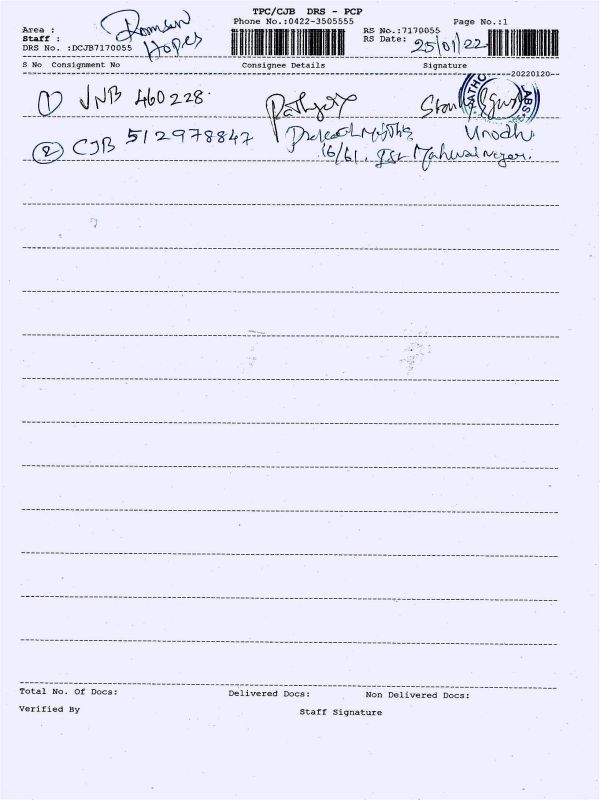 TPC/CJB DRS - PCP
Phone No.:0422-3505555
Page No.:1
Area :
Staff :
DRS No. :DCJB7170055
RS No.:7170055
RS Date: 25/01/22
S No Consignment No Consignee Details Signature
20220120
1 JNB 460228
2 CJB 512978847
16/61.
Total No. Of Docs: Delivered Docs: Non Delivered Docs:
Verified By Staff Signature